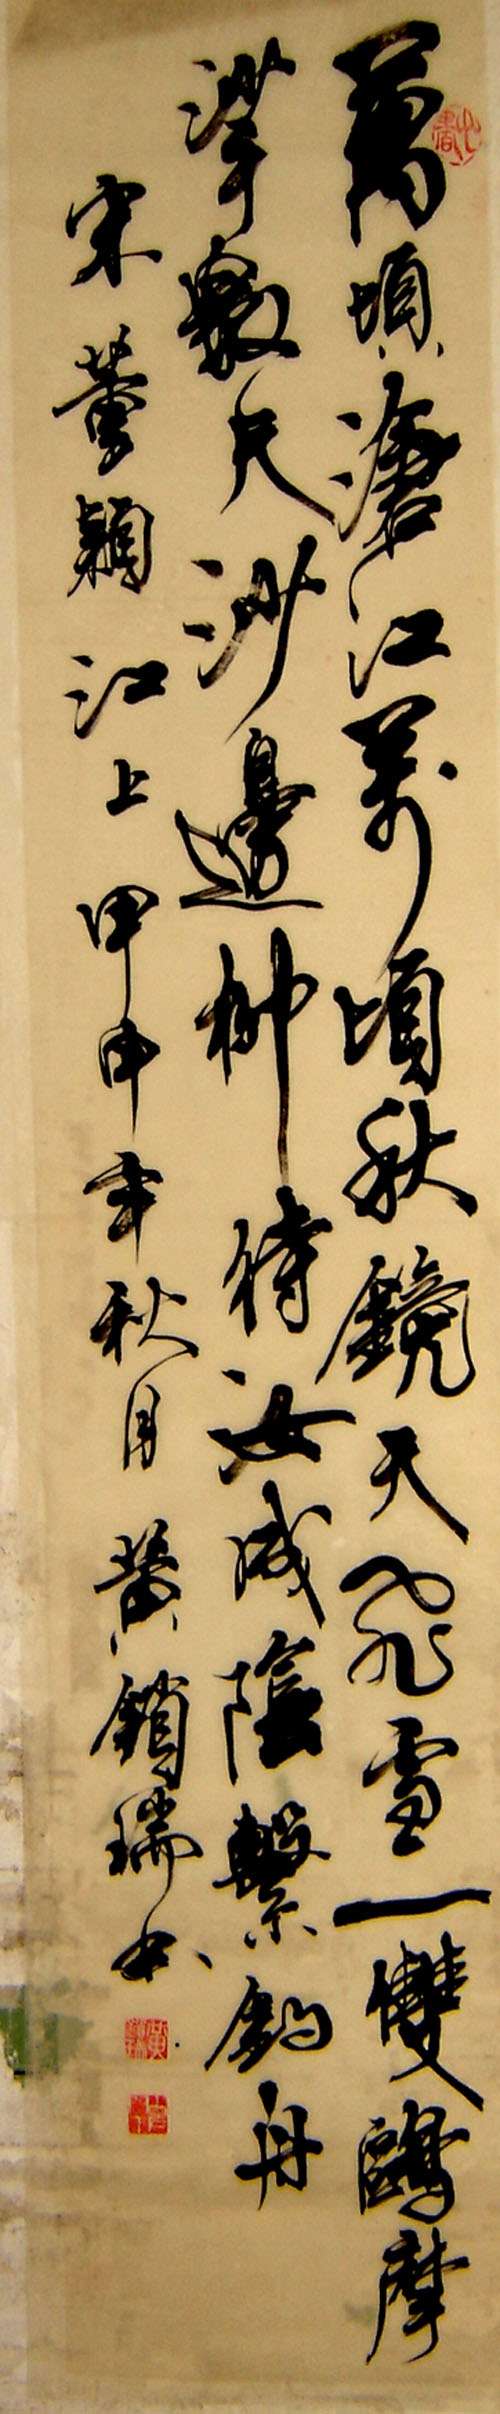 萬頃滄江万頃秋鏡天飛雪一雙鷗摩
挲數尺沙邊柳待汝成陰繫釣舟
宋董穎江上甲申年秋月黄鎖瑞书